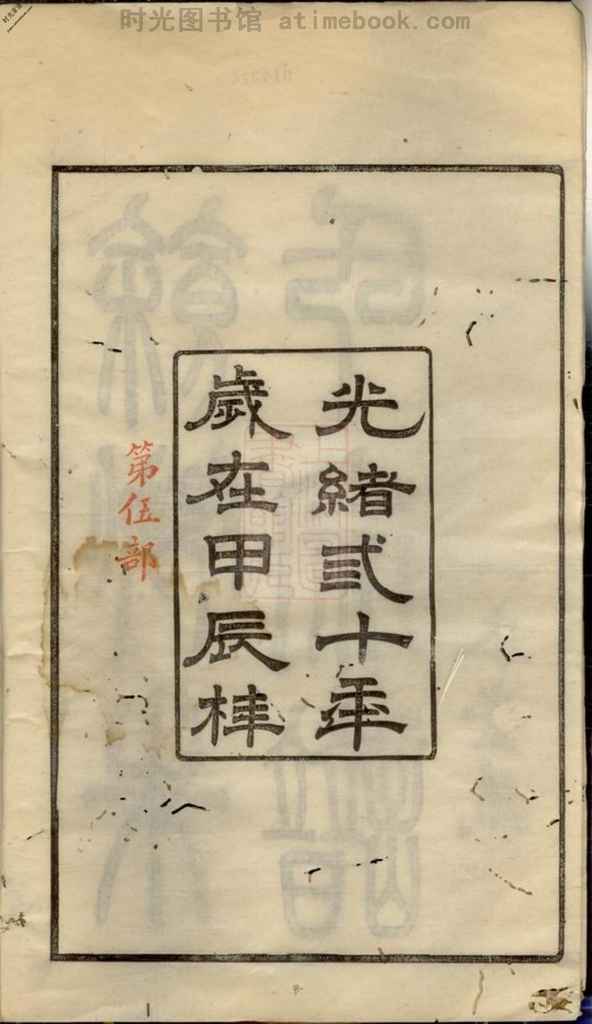 时光图书馆 atimebook.com
光緒弍十年
歲在甲辰桂
第伍部